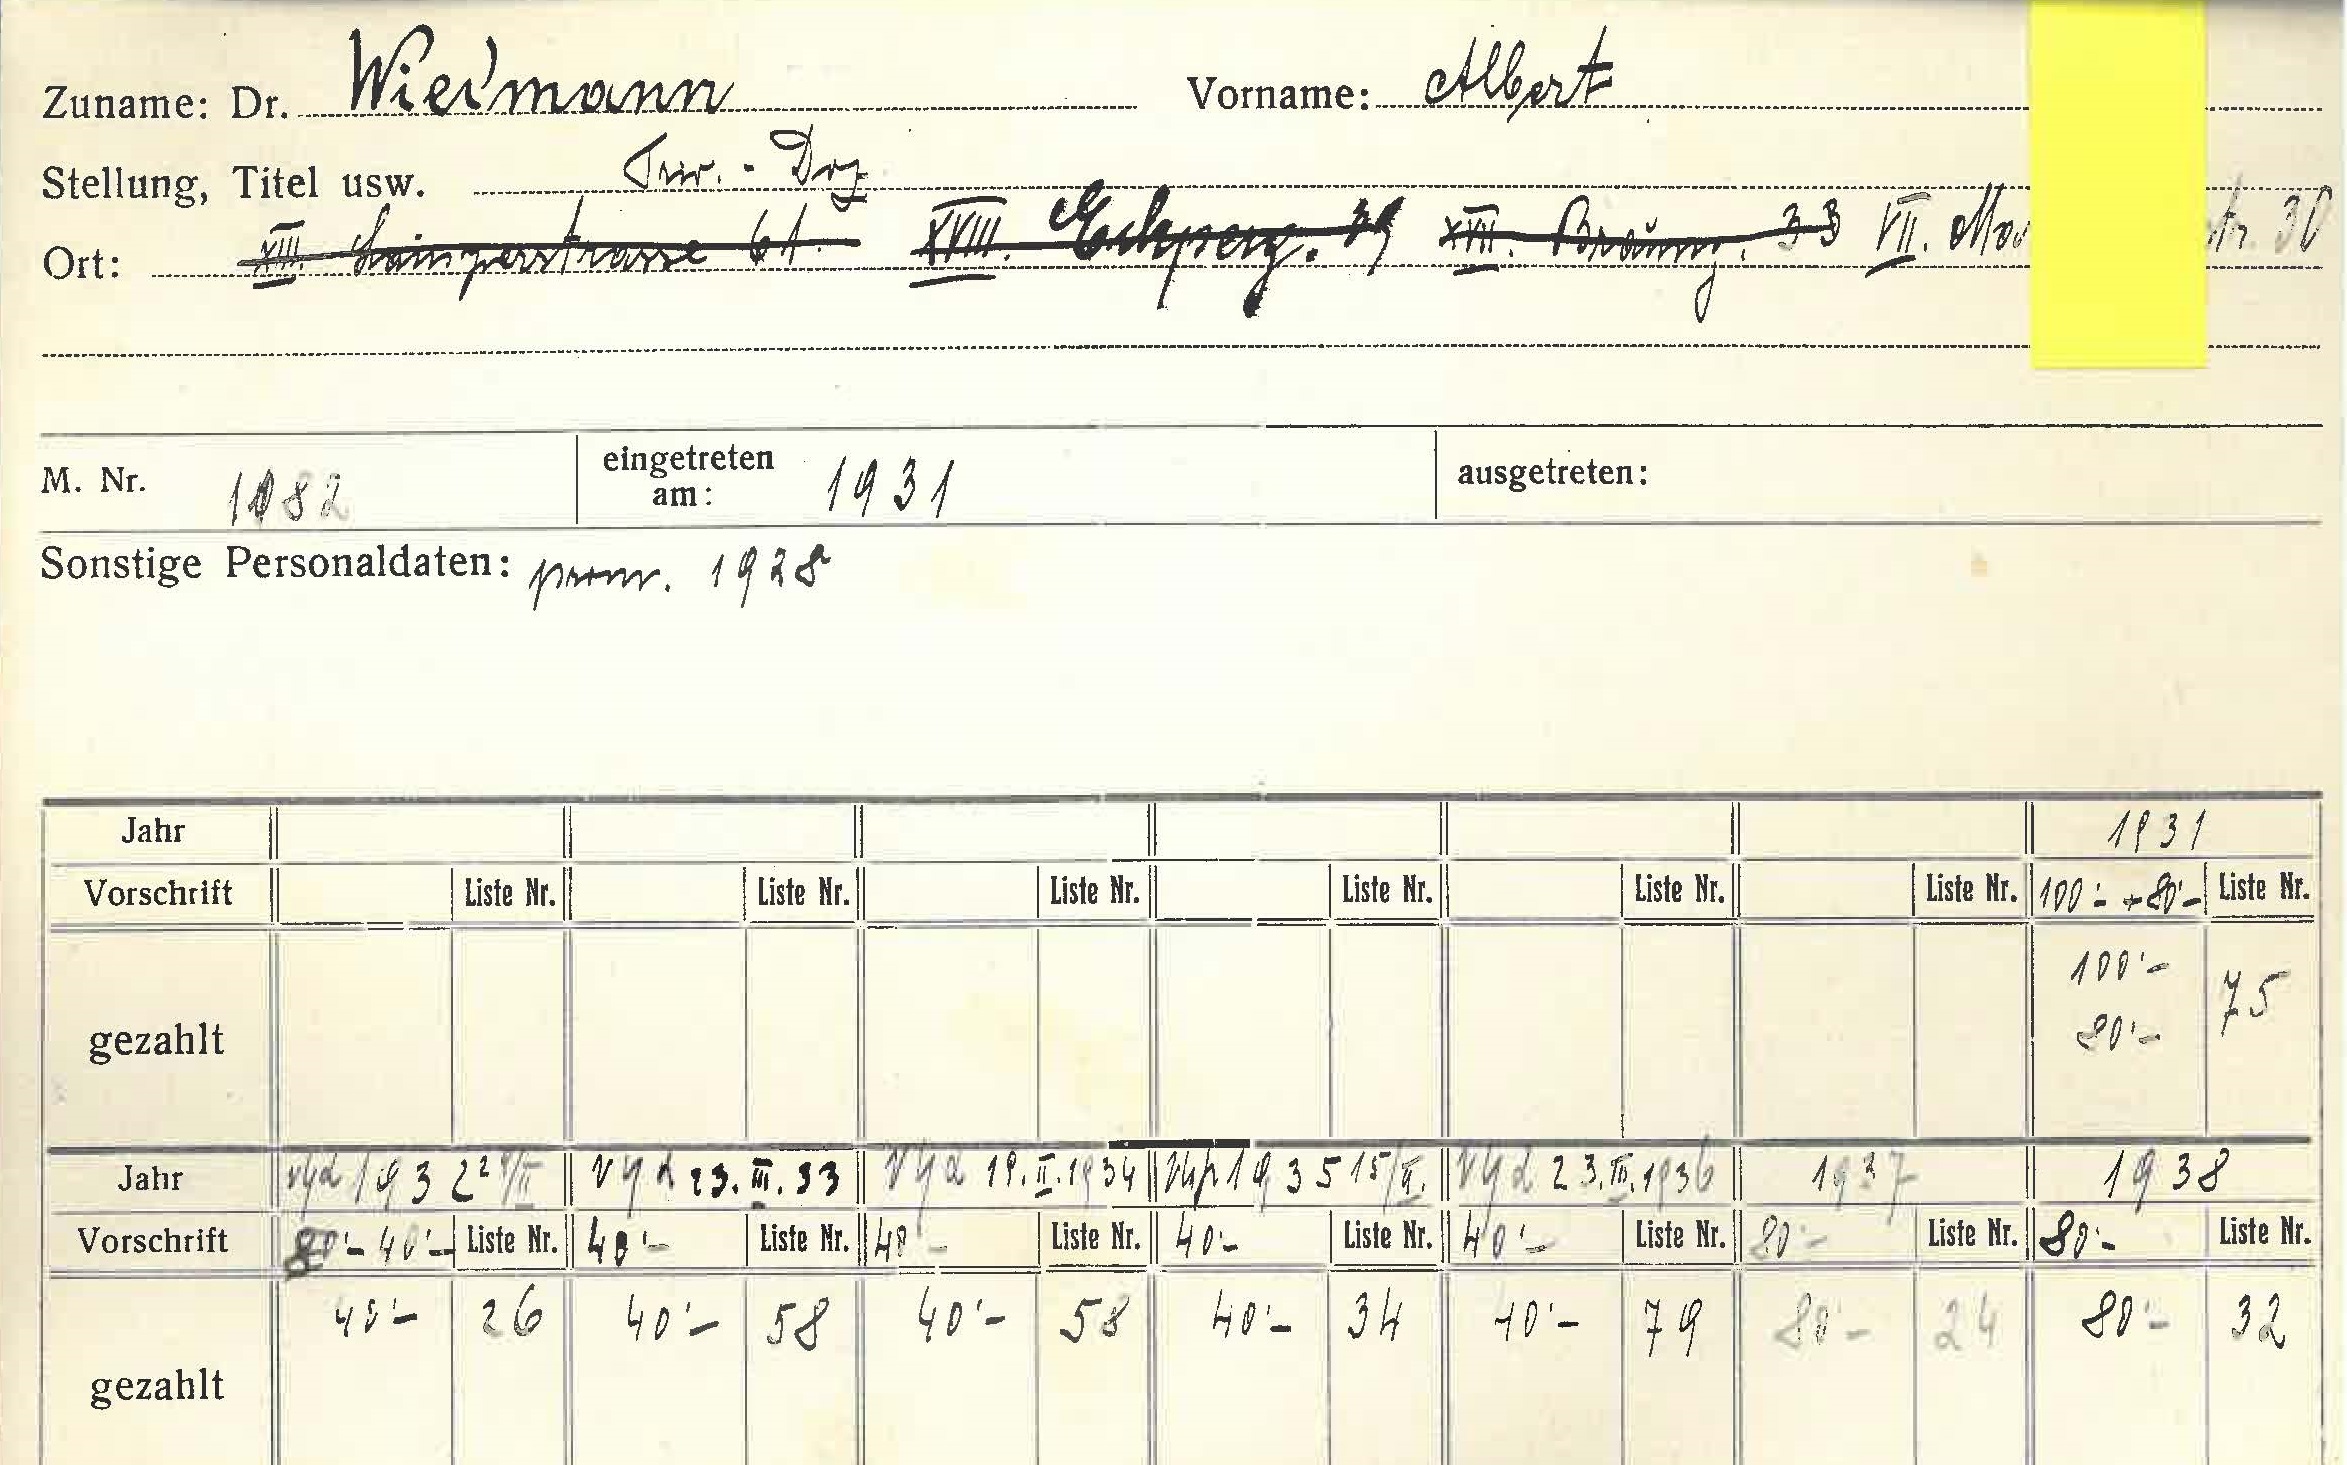 Zuname: Dr. Wiedmann Vorname: Albert
Stellung, Titel usw. Priv. - Doz
Ort: XIII. Lainzerstrasse 61. XVIII. Eckperg. 39 XVII. Bräung. 33 VII. str. 30
M. Nr. 1082 eingetreten am: 1931 ausgetreten:
Sonstige Personaldaten: prom. 1928
Jahr 1931
Vorschrift Liste Nr. Liste Nr. Liste Nr. Liste Nr. Liste Nr. Liste Nr. 100'- + 80'- Liste Nr.
gezahlt 100'- 80'- 75
Jahr 1932 23. III. 33 19. II. 1934 1935 15/II. 23. III. 1936 1937 1938
Vorschrift 80'- 40'- Liste Nr. 40'- Liste Nr. 40'- Liste Nr. 40'- Liste Nr. 40'- Liste Nr. 80'- Liste Nr. 80'- Liste Nr.
gezahlt 40'- 26 40'- 58 40'- 58 40'- 34 40'- 79 80'- 24 80'- 32